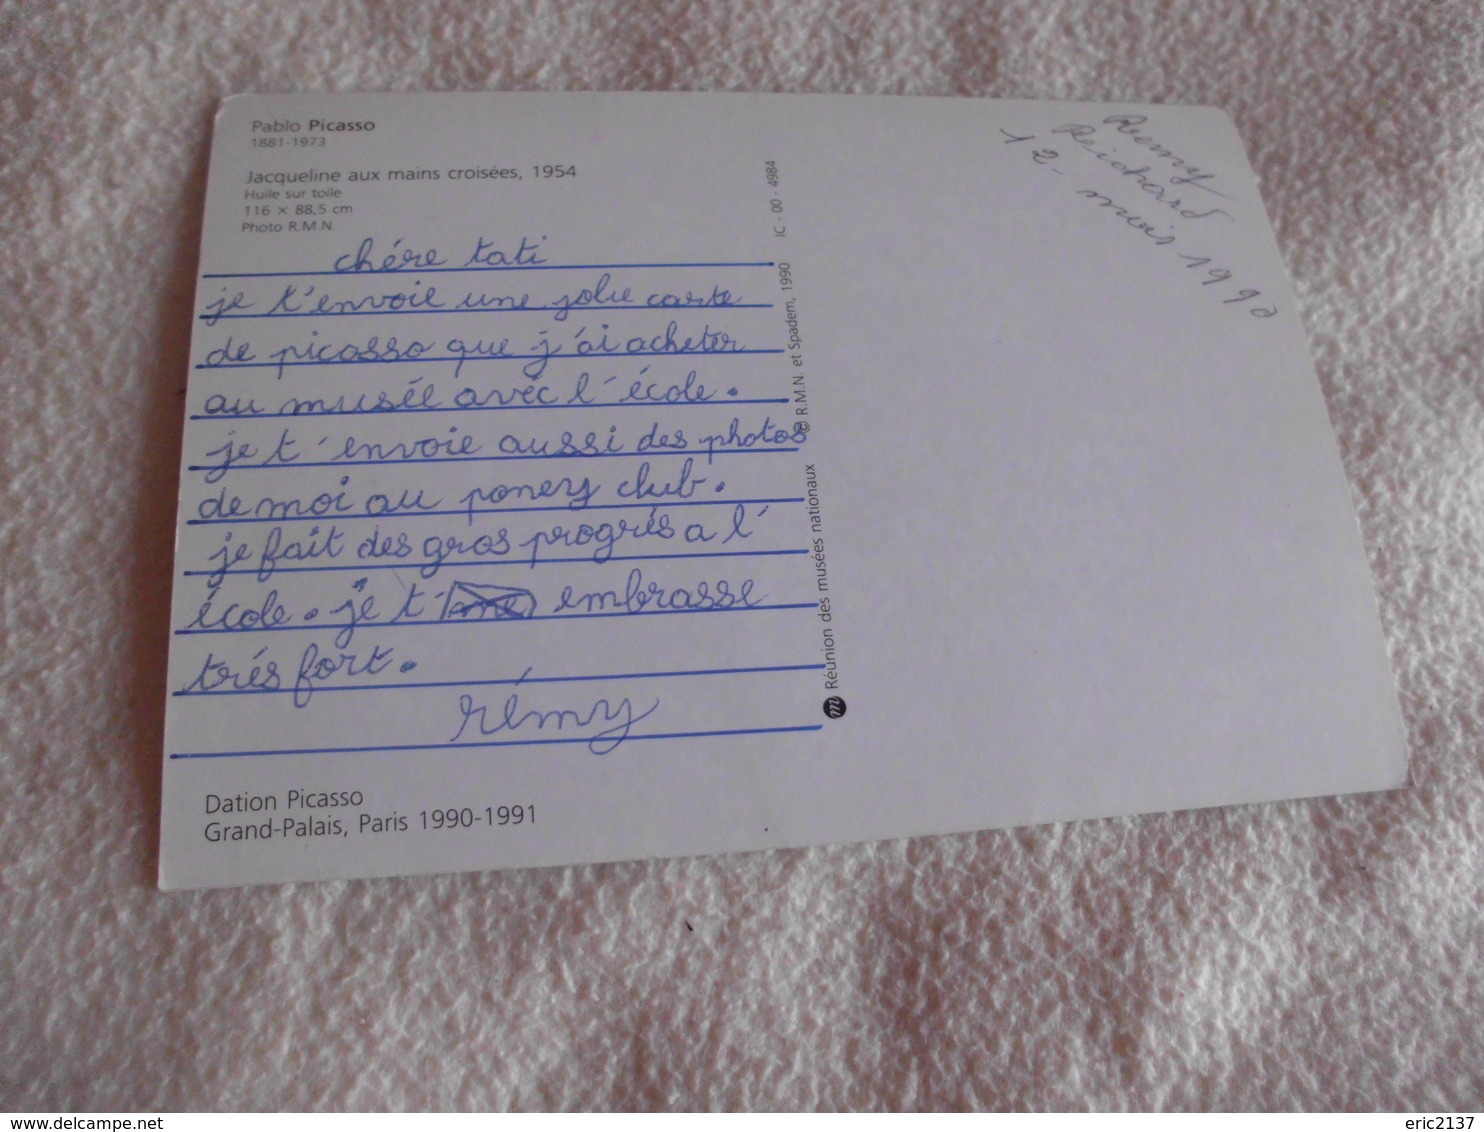 Pablo Picasso
1881-1973
Jacqueline aux mains croisées, 1954
Huile sur toile
116 × 88,5 cm
Photo R.M.N.
chére tati
je t'envoie une jolie carte
de picasso que j'ai acheter
au musée avéc l'école.
je t'envoie aussi des photos
de moi au poney club.
je fait des gros progrés a l'
école. je t' embrasse
trés fort.
rémy
Dation Picasso
Grand-Palais, Paris 1990-1991
Réunion des musées nationaux © R.M.N. et Spadem, 1990 IC - 00 - 4984
Remy
Reichard
12 - mois 1990
www.delcampe.net
eric2137